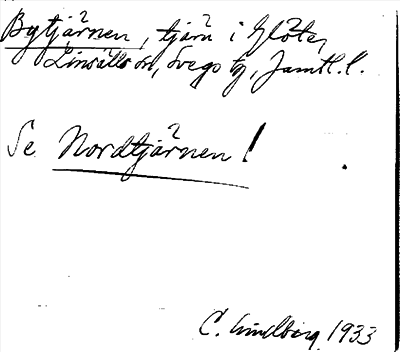 Bytjärnen, tjärn i Glöte,
Linsälls sn, Svegs tg, Jämtl. l.
Se Nordtjärnen!
C. Lindberg 1933